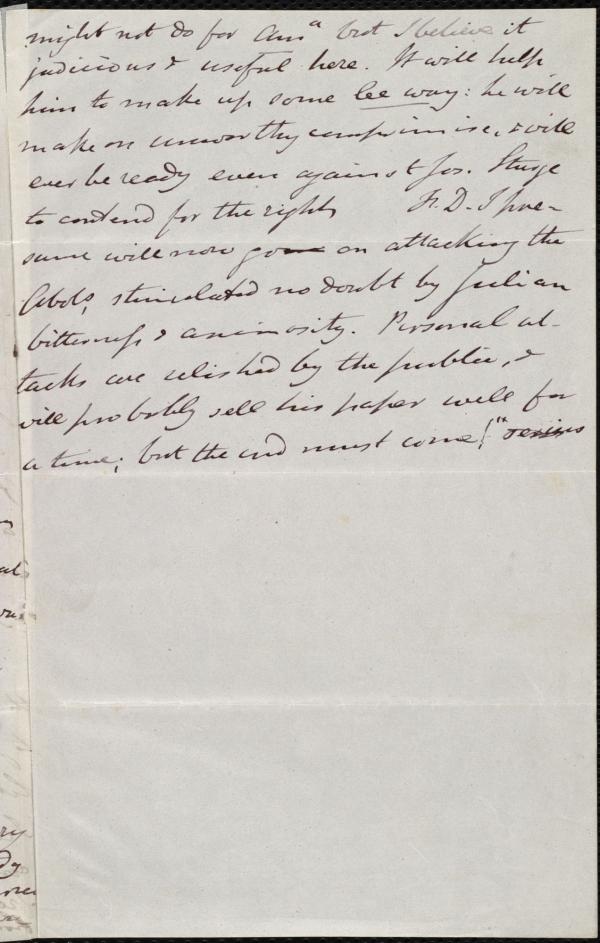 might not do for Am<sup>a</sup> but I believe it
judicious & useful here. It will help
him to make up some lee way: he will
make no unworthy compromise, & will
ever be ready even against Jos. Sturge
to contend for the right F. D. I pre-
sume will now go on attacking the
Abols, stimulated no doubt by Julian
bitterness & animosity. Personal at-
tacks are relished by the public, &
will probably sell his paper well for
a time; but the end must come!"